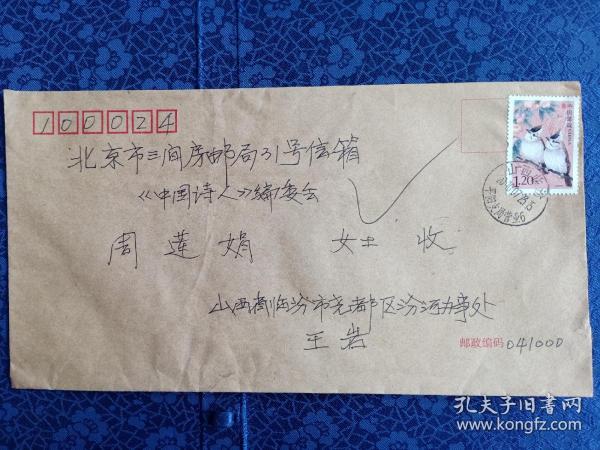 100024
北京市三间房邮局31号信箱
《中国诗人》编委会
周莲娟 女士 收
山西省临汾市尧都区汾河办事处
王岩
邮政编码 041000
中国邮政
1.20元
山西
孔夫子旧书网
www.kongfz.com